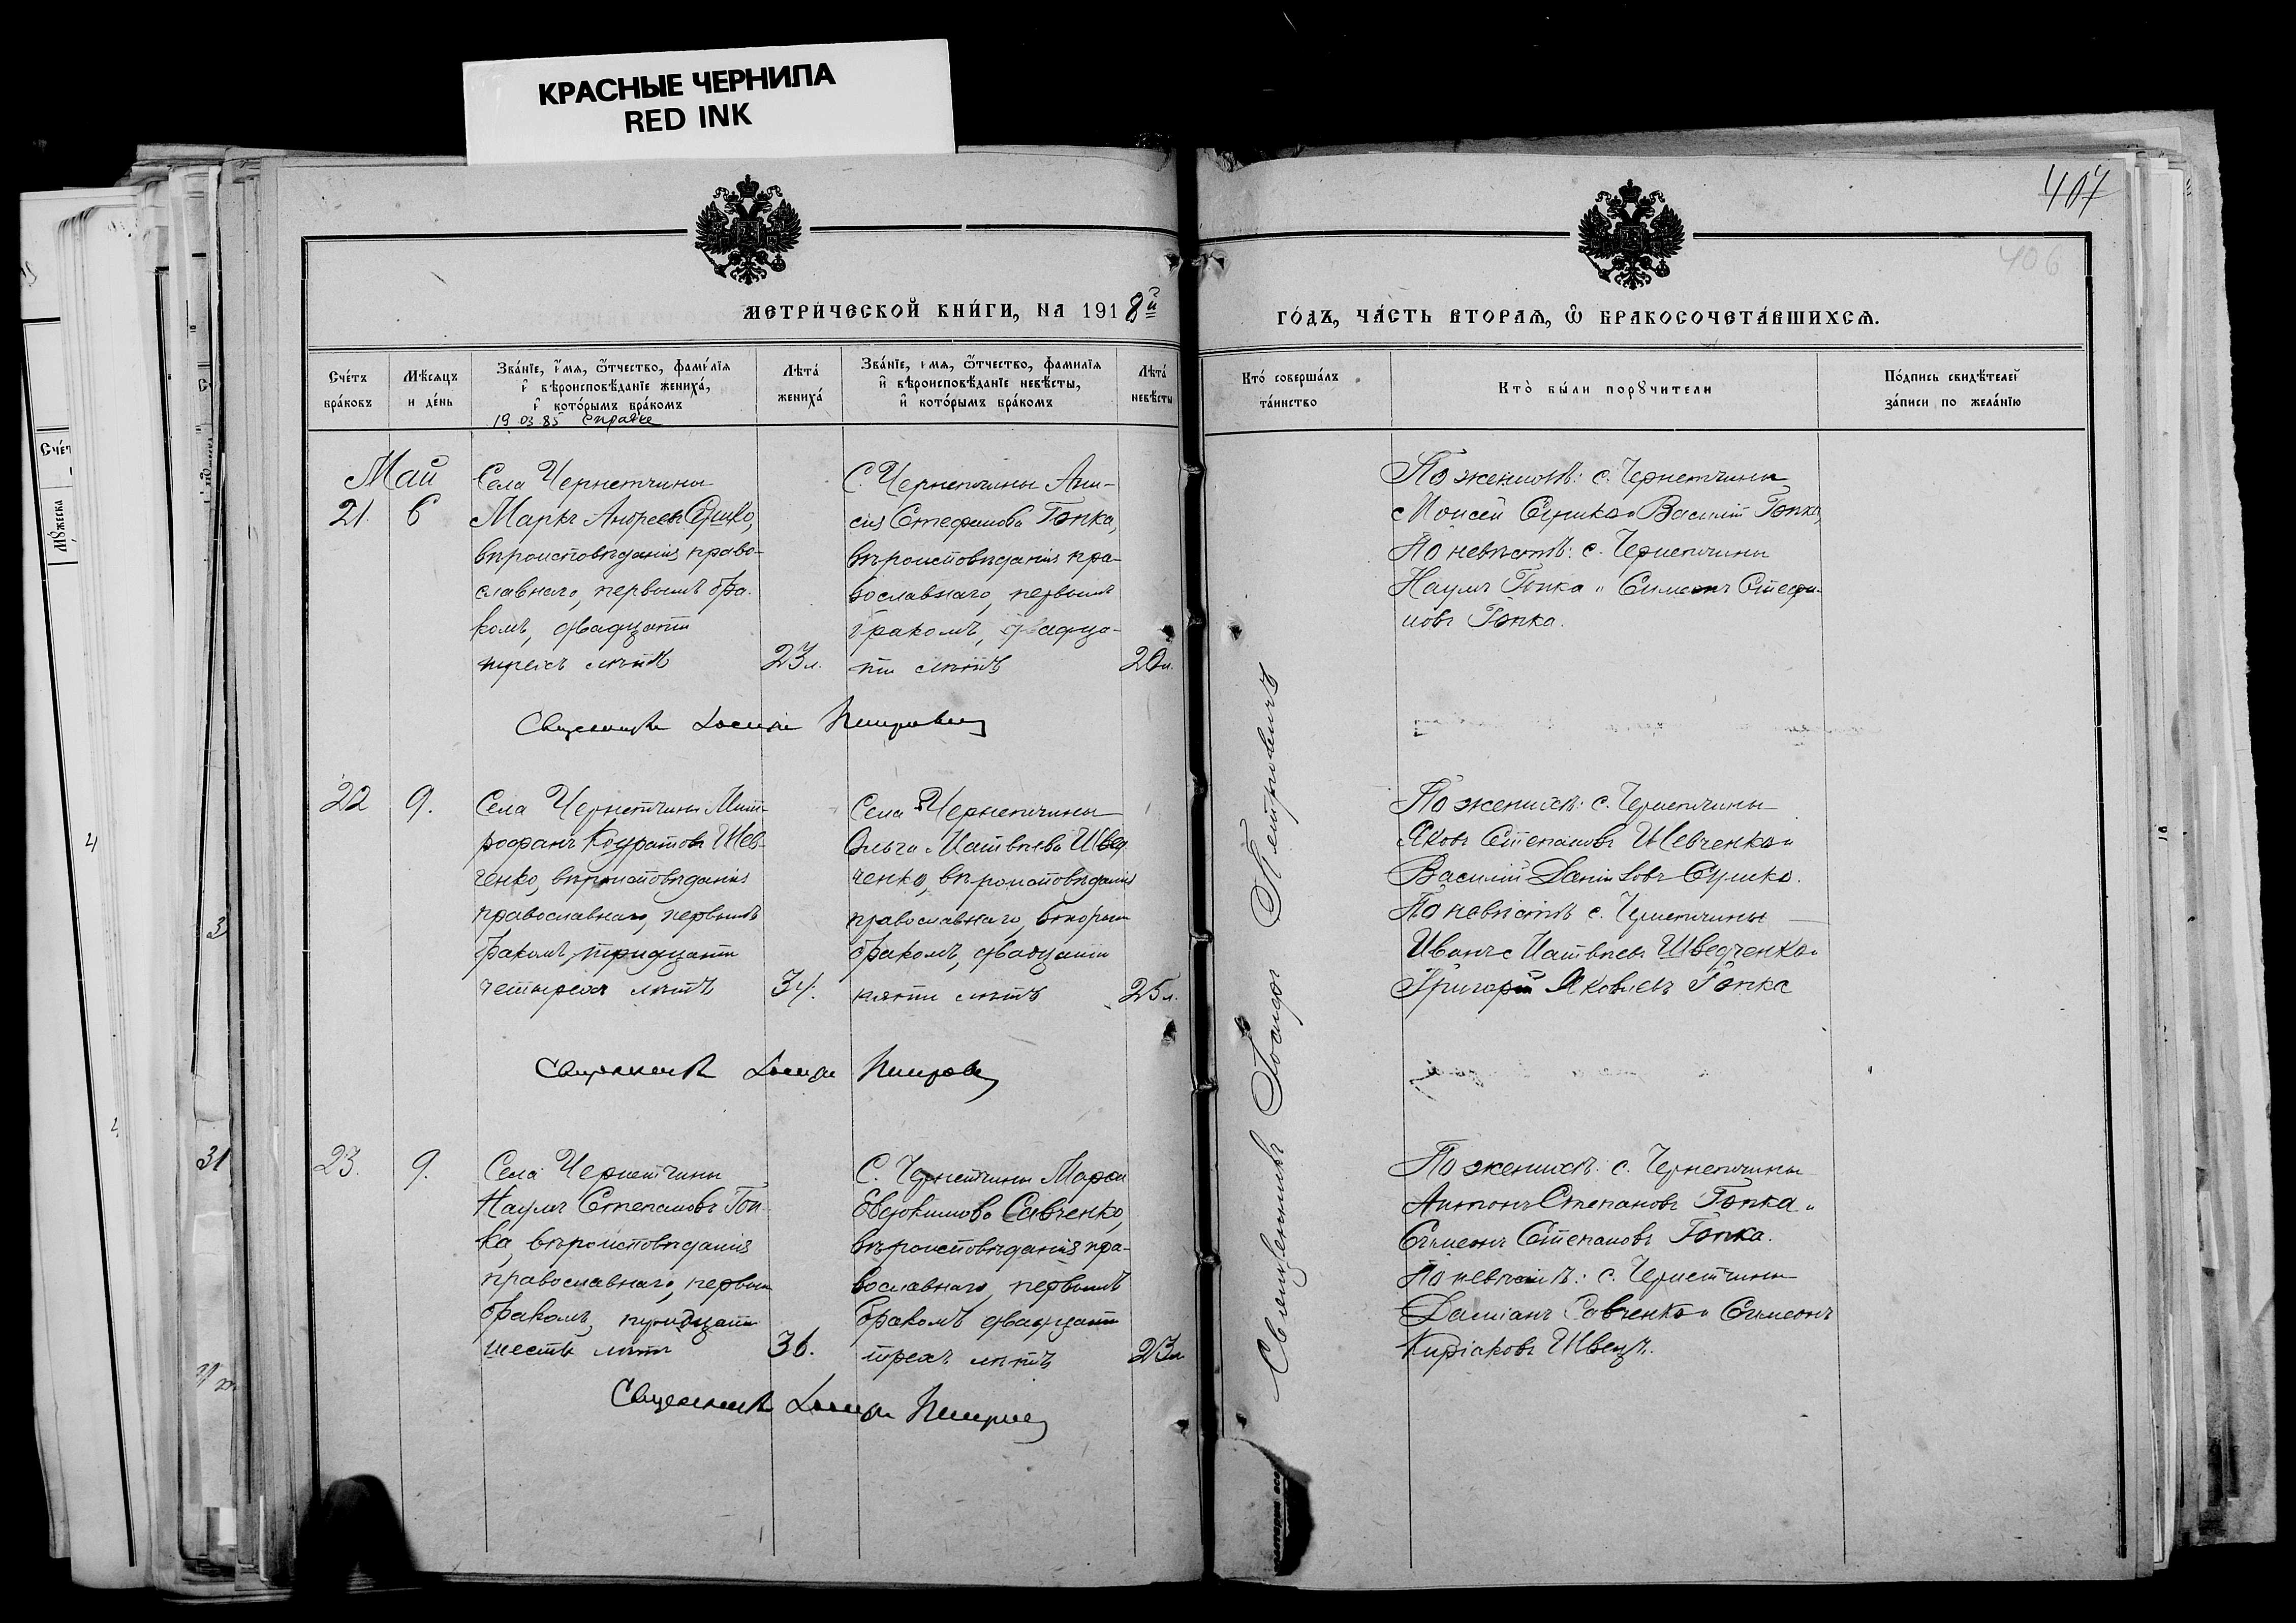 КРАСНЫЕ ЧЕРНИЛА
RED INK
407
406
МЕТРИ́ЧЕСКОЙ КНИ́ГИ, НА 1918й
ГО́ДЪ, ЧА́СТЬ ВТОРА́Ѧ, Ѽ БРАКОСОЧЕТА́ВШИХСѦ.
Сче́тъ бра́ковъ
Мѣ́сѧцъ и де́нь
Зва́нїе, и́мѧ, ѻ҆́тчество, фами́лїѧ
и҆ вѣроисповѣ́данїе жениха́,
и҆ кото́рымъ бра́комъ
19 03 85 справке
Лѣта́ жениха́
Зва́нїе, и́мѧ, ѻ҆́тчество, фами́лїѧ
и҆ вѣроисповѣ́данїе невѣ́сты,
и҆ кото́рымъ бра́комъ
Лѣта́ невѣ́сты
Кто́ соверша́лъ та́инство
Кто̀ бы́ли порꙋчи́тели
По́дпись свидѣ́телей
за́писи по жела́нїю
Май
21. 6
Села Чернетчины
Маркъ Андреевъ Сушко,
вѣроисповѣданія право-
славнаго, первымъ бра-
комъ, двадцати
трехъ лѣтъ
23 л.
С. Чернетчины Ани-
сія Стефанова Гопка,
вѣроисповѣданія пра-
вославнаго, первымъ
бракомъ, двадца-
ти лѣтъ
20 л.
По женихѣ: с. Чернетчины
Моисей Сушко и Василій Гопка,
По невѣстѣ: с. Чернетчины
Наумъ Гопка и Симеонъ Стефа-
новъ Гопка.
Священникъ Іоаннъ Петровичъ
22 9.
Села Чернетчины Мит-
рофанъ Кодратовъ Шев-
ченко, вѣроисповѣданія
православнаго, первымъ
бракомъ, тридцати
четырехъ лѣтъ
34.
Села Чернетчины
Ольга Матвѣева Швед-
ченко, вѣроисповѣданія
православнаго, вторым
бракомъ, двадцати
пяти лѣтъ
25 л.
По женихѣ: с. Чернетчины
Яковъ Степановъ Шевченко и
Василій Даниловъ Сушко.
По невѣстѣ с. Чернетчины
Иванъ Матвѣевъ Шведченко и
Григорій Яковлевъ Гопка
Священникъ
23. 9.
Села Чернетчины
Наумъ Степановъ Гоп-
ка, вѣроисповѣданія
православнаго, первым
бракомъ, тридцати
шести лѣтъ
36.
С. Чернетчины Марфа
Евдокимова Савченко,
вѣроисповѣданія пра-
вославнаго, первымъ
бракомъ двадцати
трехъ лѣтъ
23 л
По женихѣ: с. Чернетчины
Антонъ Степановъ Гопка и
Симеонъ Степановъ Гопка.
По невѣстѣ: с. Чернетчины
Даміанъ Савченко и Симеонъ
Киріаковъ Швецъ.
Священникъ